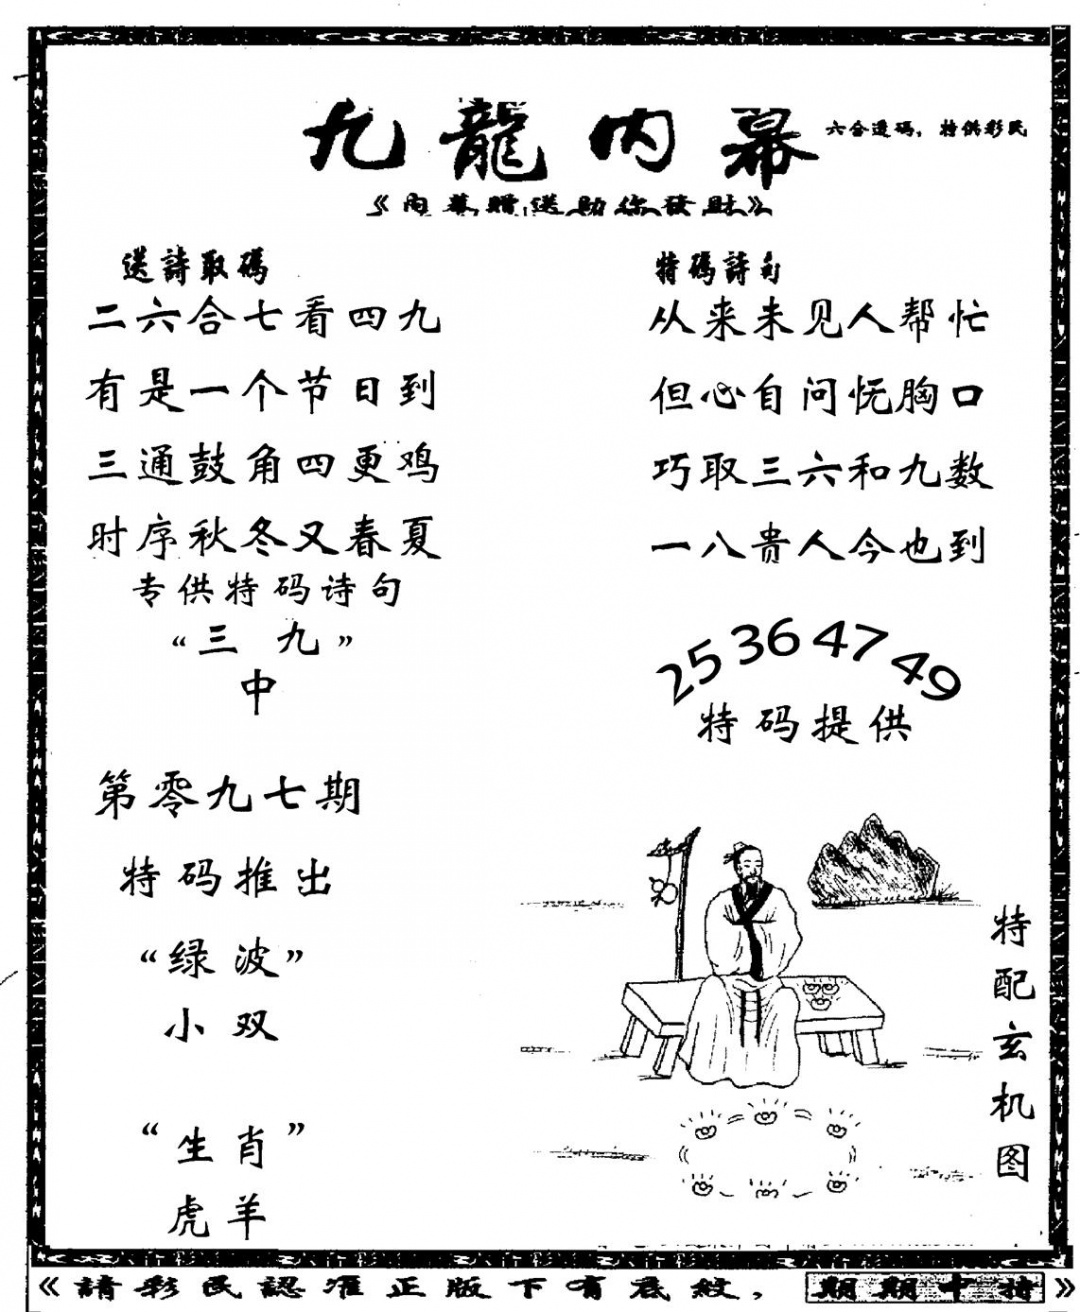 九龍内幕
六合透码，特供彩民
《内幕赠送助你發財》
送詩取碼
二六合七看四九
有是一个节日到
三通鼓角四更鸡
时序秋冬又春夏
专供特码诗句
“三 九”
中
第零九七期
特码推出
“绿波”
小双
“生肖”
虎羊
特碼詩句
从来未见人帮忙
但心自问怃胸口
巧取三六和九数
一八贵人今也到
25 36 47 49
特码提供
特配玄机图
《請彩民認准正版下有底紋，期期中特》